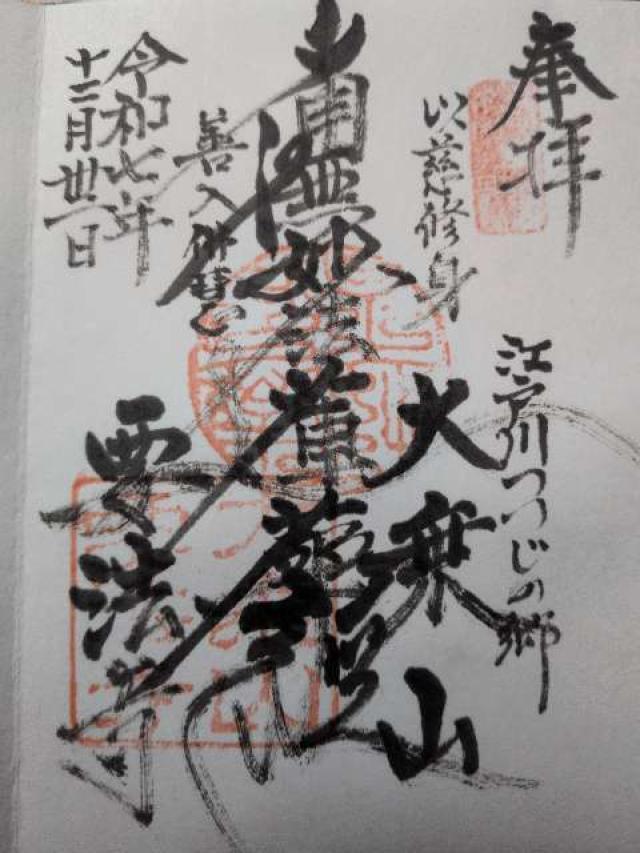 奉拝
江戸川つつじの郷
以慈修身
大乗山
南無妙法蓮華経
善入佛慧
要法寺
令和七年
十二月卅一日